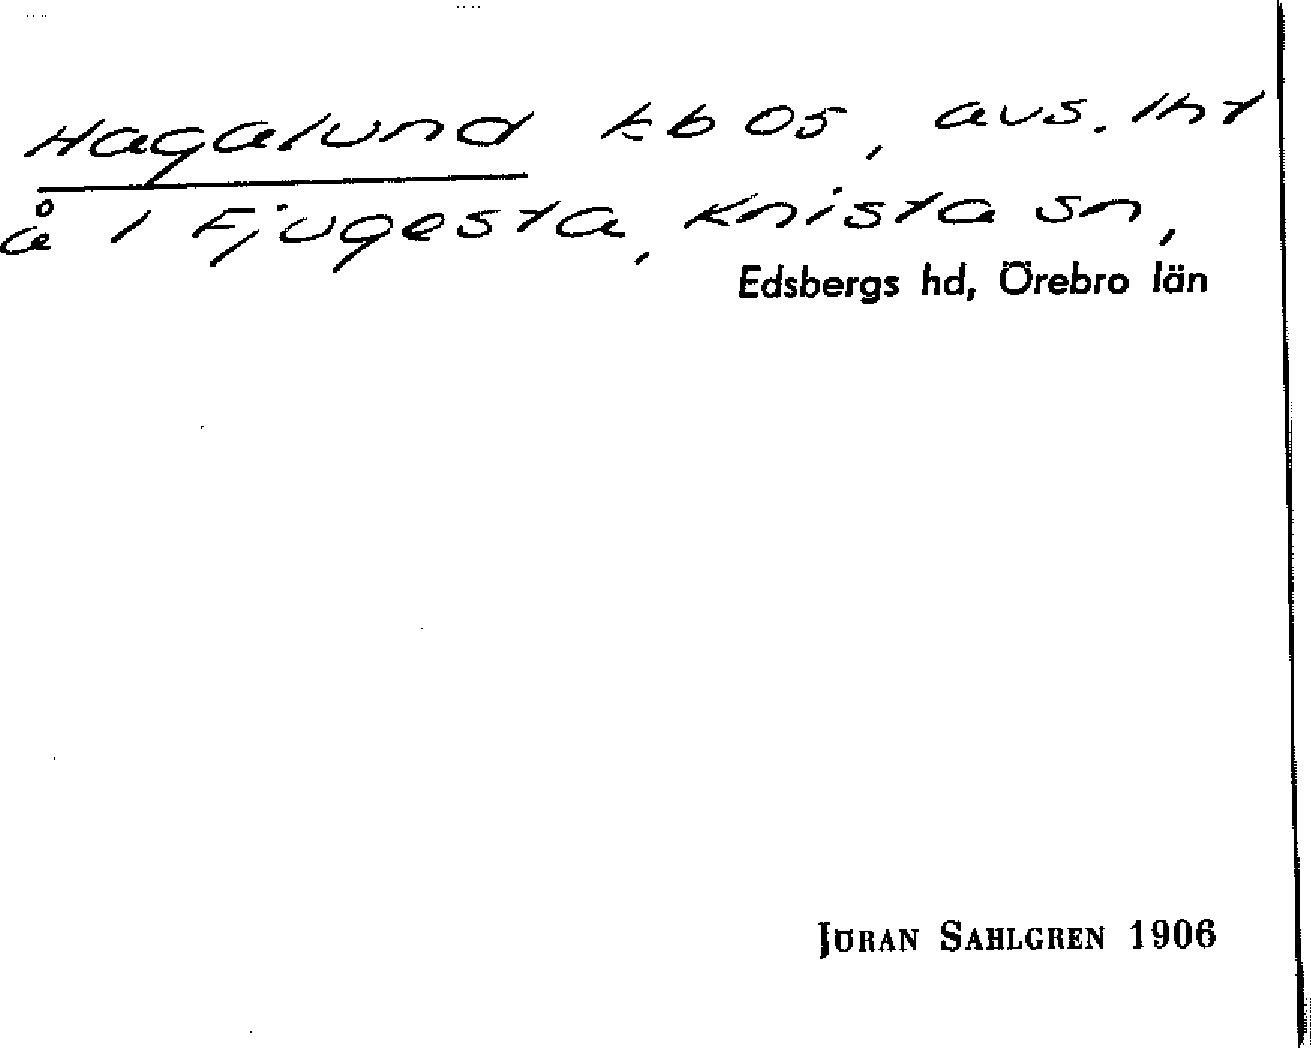 Hagalund kb 05, avs. lht
å 1 Fjugesta, Knista sn,
Edsbergs hd, Örebro län
JÖRAN SAHLGREN 1906